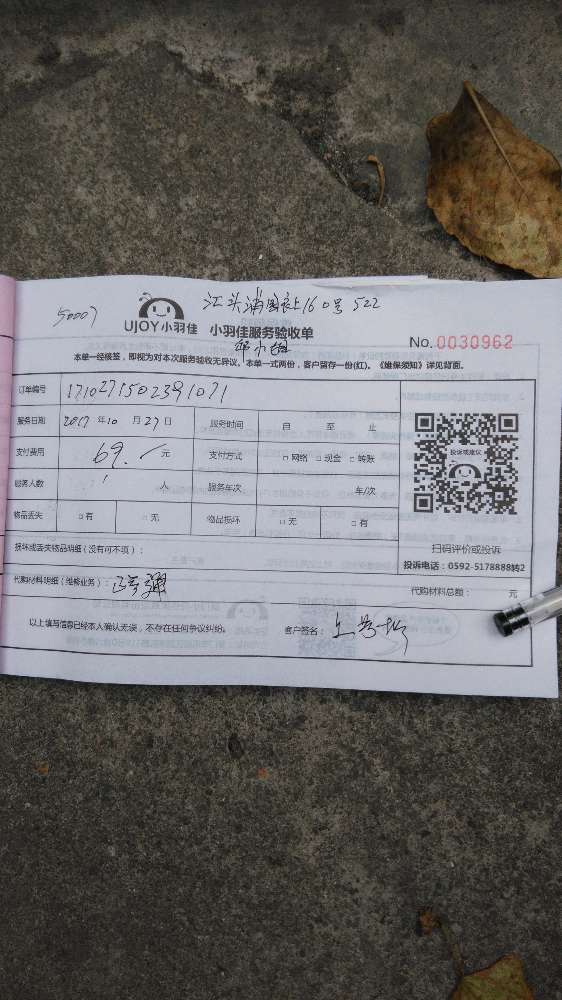 江头浦园上160号522
50007
UJOY小羽佳 小羽佳服务验收单
No. 0030962
本单一经核签，即视为对本次服务验收无异议。本单一式两份，客户留存一份(红)。《维保须知》详见背面。
订单编号 1710271502391071
服务日期 2017年10月27日 服务时间 自 至 止
投诉或建议
支付费用 69. 元 支付方式 □网络 □现金 □转账
服务人数 1 人 服务车次 车/次
物品丢失 □有 □无 物品损坏 □无 □有
扫码评价或投诉
投诉电话：0592-5178888转2
损坏或丢失物品明细（没有可不填）：
代购材料明细（维修业务）： 代购材料总额： 元
以上填写信息已经本人确认无误，不存在任何争议纠纷。 客户签名：